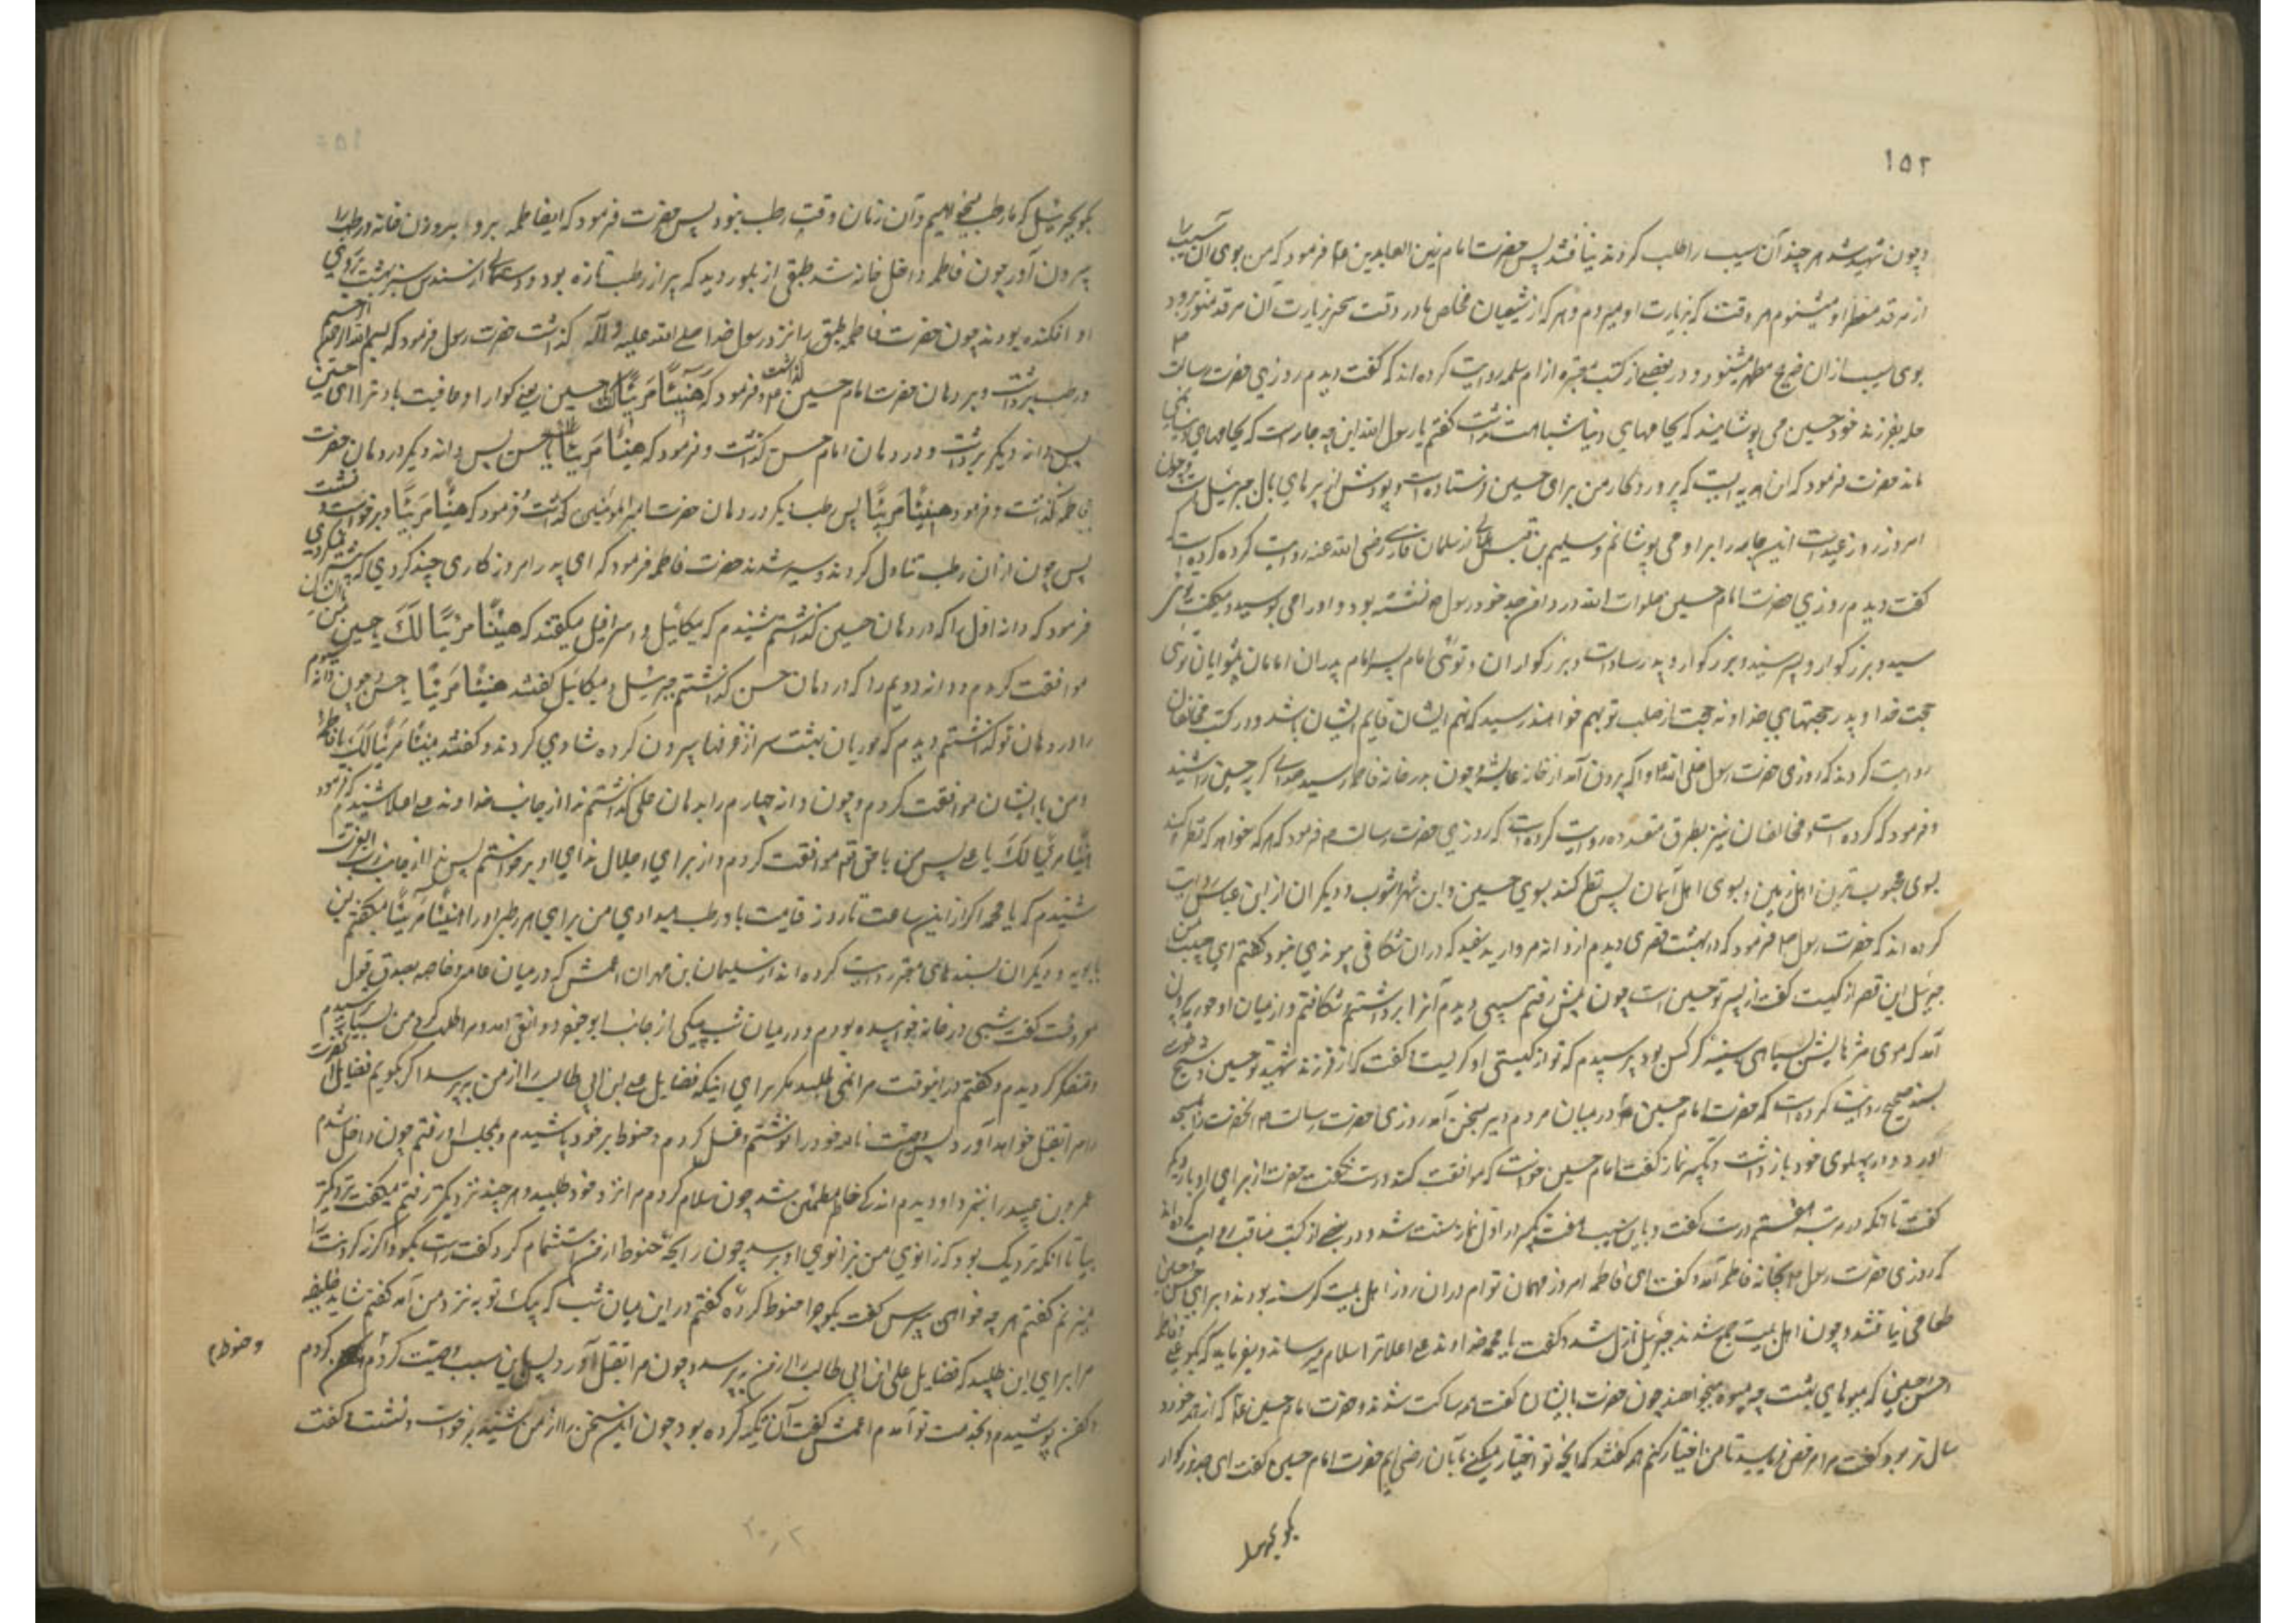 ۱۵۲
و چون شهید شد هر چند آن سیب را طلب کردند نیافتند پس حضرت امام زین العابدین ع فرمود که من بوی آن سیب را
از مرقد منظر او میشنوم هر وقت که بزیارت او میروم و هر که از شیعیان مخلص ما در وقت سحر بزیارت آن مرقد منور برود
بوی سیب از آن ضریح مطهر میشنود و در بعضی از کتب معتبره از ام سلمه روایت کرده اند که گفت دیدم روزی حضرت رسالت ص
حله بفرزند خود حسین می پوشانید که بجامهای دنیا شباهت نداشت گفتم یا رسول الله این چه جامه است که بجامهای دنیا نمی
ماند حضرت فرمود که این هدیه ایست که پروردگار من برای حسین فرستاده است و پودش از پرهای بال جبرئیل است و چون
امروز روز عیدست این جامه را بر او می پوشانم و سلیم بن قیس هلالی از سلمان فارسی رضی الله عنه روایت کرده است که
گفت دیدم روزی حضرت امام حسین صلوات الله در دامن جد خود رسول ص نشسته بود و او را می بوسید و میگفت توئی
سید و بزرگوار و پسر سید و بزرگوار و پدر سادات و بزرگواران و توئی امام پسر امام پدر امامان پیشوایان توئی
حجت خدا و پدر حجتهای خدا و نه حجت از صلب تو بهم خواهند رسید که نهم ایشان قایم ایشان باشد و در کتب مخالفان
روایت کردند که روزی حضرت رسول صلی الله علیه و آله بیرون آمد از خانه عایشه و چون بدر خانه فاطمه رسید صدای گریه حسین را شنید
و فرمود که گرده است و مخالفان نیز بطرق متعدده روایت کرده است که روزی حضرت رسالت ص فرمود که هر که خواهد که نظر کند
بسوی محبوب ترین اهل زمین و بسوی اهل آسمان پس نظر کند بسوی حسین و ابن شهر آشوب و دیگران از ابن عباس روایت
کرده اند که حضرت رسول ص فرمود که در بهشت قصری دیدم از دانه مروارید سفید که در آن شکافی و پیوندی نبود گفتم ای حبیب من
جبرئیل این قصر از کیست گفت از پسر تو حسین است چون پیش رفتم سیبی دیدم آنرا برداشتم و شکافتم و از میان او حوری بیرون
آمد که موی مژهایش بسیاهی سینه کرکس بود پرسیدم که تو از کیستی او گریست و گفت که از فرزند شهید تو حسین و شیخ طوسی
بسند صحیح روایت کرده است که حضرت امام حسین ع در میان مردم دیر بسخن آمد روزی حضرت رسالت ص آنحضرت را بمسجد
آورد و در پهلوی خود بازداشت و تکبیر نماز گفت امام حسین خواست که موافقت کند درست نگفت حضرت از برای او بار دیگر
گفت تا آنکه در مرتبه هفتم درست گفت و باین سبب هفت تکبیر در اول نماز سنت شد و در بعضی از کتب مناقب روایت کرده اند
که روزی حضرت رسول ص بخانه فاطمه آمد و گفت ای فاطمه امروز مهمان توام و در آن روز اهل بیت گرسنه بودند و برای حسن و حسین
طعامی نیافتند و چون اهل بیت جمع شدند جبرئیل نازل شد و گفت یا محمد خداوند علی اعلا ترا سلام میرساند و میفرماید که بگو بعلی و فاطمه
و حسن و حسین که میوهای بهشت چه میوه میخواهند چون حضرت بایشان گفت همه ساکت شدند و حضرت امام حسین ع که از همه خورد
سال تر بود گفت مرا مرخص نمایید تا من اختیار کنم همه گفتند که آنچه تو اختیار میکنی ما بآن راضی ایم حضرت امام حسین گفت ای جد بزرگوار
بگو بجبرئیل
بگو بجبرئیل که ما رطب میخواهیم و آن زمان وقت رطب نبود پس حضرت فرمود که ای فاطمه برو باندرون خانه و رطب را
بیرون آور چون فاطمه داخل خانه شد طبقی از بلور دید که پر از رطب تازه بود و دستمالی از سندس سبز بهشت بر روی
او افکنده بودند چون حضرت فاطمه طبق را نزد رسول خدا صلی الله علیه و آله گذاشت حضرت رسول فرمود که بسم الله الرحمن الرحیم
و رطب برداشت و بر دهان حضرت امام حسین ع گذاشت و فرمود که هنیئا مریئا لک یا حسین یعنی گوارا و عافیت باد ترا ای حسین
پس دانه دیگر برداشت و در دهان امام حسن گذاشت و فرمود که هنیئا مریئا لک یا حسن پس دانه دیگر در دهان حضرت
فاطمه گذاشت و فرمود هنیئا مریئا پس رطب دیگر در دهان حضرت امیر المومنین گذاشت و فرمود که هنیئا مریئا و برخواست و نشست
پس چون از آن رطب تناول کردند و سیر شدند حضرت فاطمه فرمود که ای پدر امروز کاری چند کردی که پیش از این نمیکردی
فرمود که دانه اول را که در دهان حسین گذاشتم شنیدم که میکائیل و اسرافیل میگفتند که هنیئا مریئا لک یا حسین پس من بایشان
موافقت کردم و دانه دویم را که در دهان حسن گذاشتم جبرئیل و میکائیل گفتند هنیئا مریئا یا حسن و چون دانه سیوم
را در دهان تو گذاشتم دیدم که حوریان بهشت سر از غرفها بیرون کرده شادی کردند و گفتند هنیئا مریئا لک یا فاطمه
و من با ایشان موافقت کردم و چون دانه چهارم را بدهان علی گذاشتم ندا از جانب خداوند علی اعلا شنیدم که فرمود
هنیئا مریئا لک یا علی پس من با حق تعالی موافقت کردم و از برای اجلال ندای او برخواستم پس ندا از جانب رب العزت
شنیدم که یا محمد اگر از این ساعت تا روز قیامت باو رطب میدادی من برای هر رطبی او را هنیئا مریئا میگفتم ابن
بابویه و دیگران بسندهای معتبر روایت کرده اند از سلیمان بن مهران اعمش که در میان عامه و خاصه بصدق قول
معروفست گفت شبی در خانه خوابیده بودم و در میان شب پیکی از جانب ابو جعفر دوانقی آمد و مرا طلب کرد من بسیار ترسیدم
و متفکر گردیدم و گفتم در اینوقت مرا نمی طلبد مگر برای اینکه فضایل علی ابن ابی طالب را از من بپرسد اگر بگویم فضایل آنحضرت
را مرا بقتل خواهد آورد پس وصیت نامه خود را نوشتم و غسل کردم و حنوط بر خود پاشیدم و بمجلس او رفتم چون داخل شدم
عمرو بن عبید را نزد او دیدم اندکی خاطرم مطمئن شد چون سلام کردم مرا نزد خود طلبید و هر چند نزدیکتر رفتم میگفت نزدیکتر
بیا تا آنکه نزدیک بود که زانوی من بزانوی او برسد چون رایحه حنوط از من استشمام کرد گفت راست بگو و اگر نه گردنت را
میزنم گفتم هر چه خواهی بپرس گفت بگو چرا حنوط کرده گفتم در این میان شب که پیک تو به نزد من آمد گفتم شاید خلیفه
مرا برای این طلبید که فضایل علی ابن ابی طالب را از من بپرسد و چون مرا بقتل آورد پس باین سبب وصیت کردم کردم
و حنوطم
و کفن پوشیدم و بخدمت تو آمدم اعمش گفت آن تکیه کرده بود چون این سخن را از من شنید برخواست و نشست و گفت